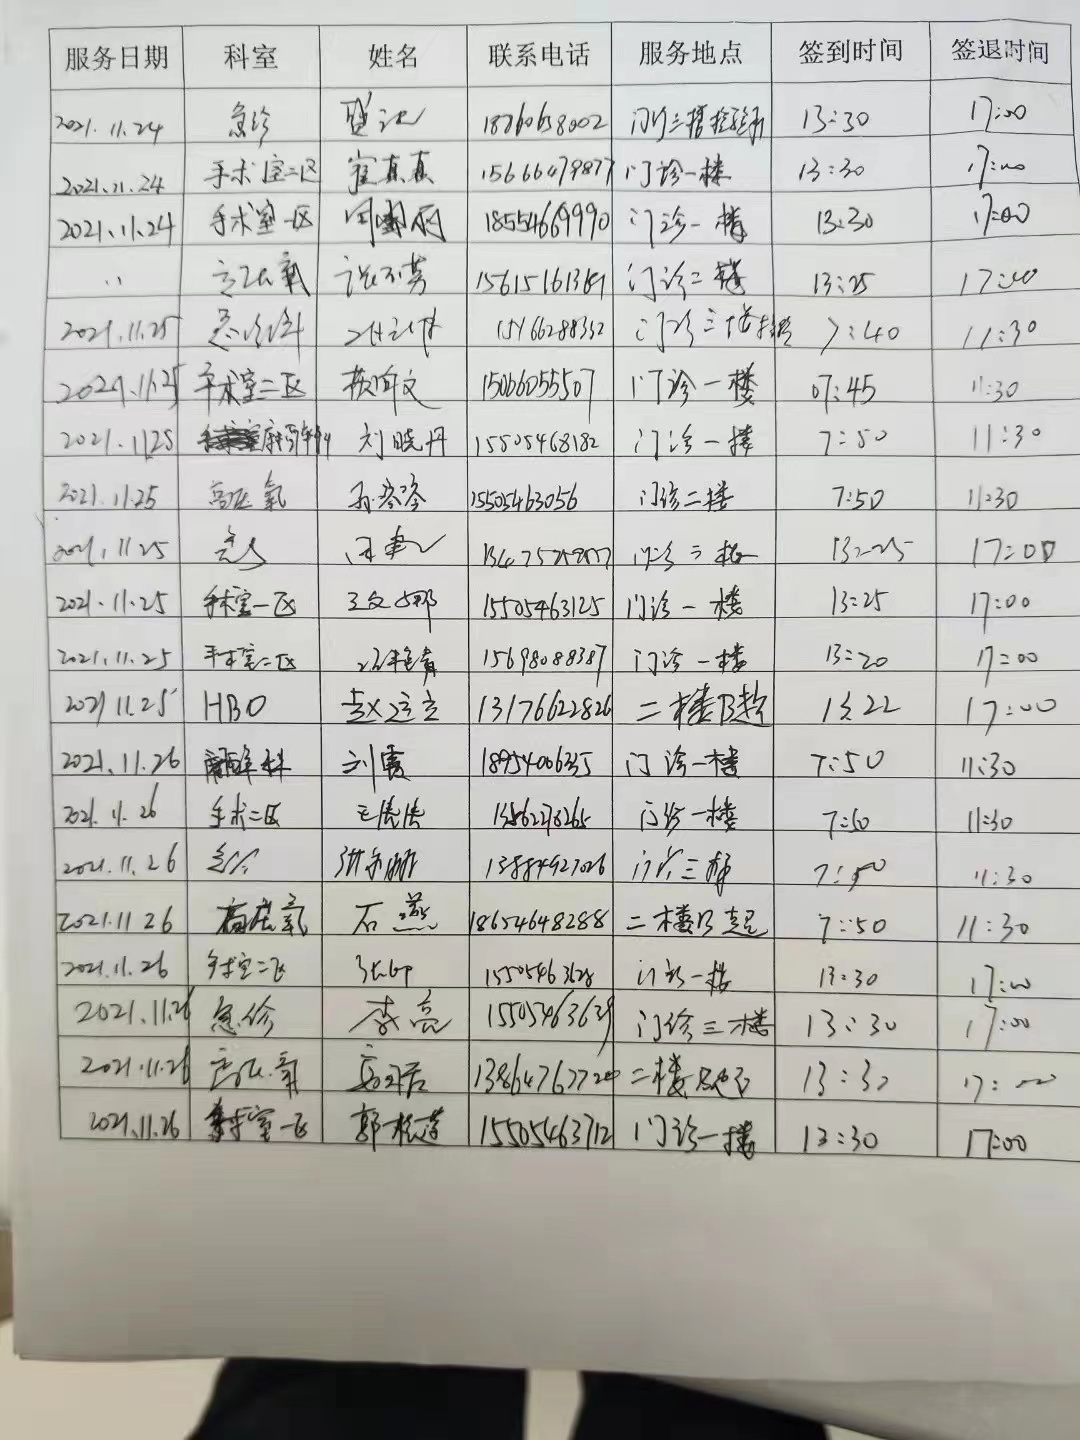 服务日期 科室 姓名 联系电话 服务地点 签到时间 签退时间
2021.11.24 急诊 门诊三楼 13:30 17:00
2021.11.24 手术室二区 崔真真 15666479877 门诊一楼 13:30 17:00
2021.11.24 手术室一区 18554669990 门诊一楼 13:30 17:00
〃 高压氧 门诊二楼 13:25 17:00
2021.11.25 急诊科 15966288352 门诊三楼 7:40 11:30
2021.11.25 手术室二区 15066055507 门诊一楼 07:45 11:30
2021.11.25 刘晓丹 15505468182 门诊一楼 7:50 11:30
2021.11.25 高压氧 孙岑岑 15505463056 门诊二楼 7:50 11:30
2021.11.25 急诊 门诊三楼 13:25 17:00
2021.11.25 手术室一区 王文娜 15505463125 门诊一楼 13:25 17:00
2021.11.25 手术室二区 15698088387 门诊一楼 13:20 17:00
2021.11.25 HBO 13176622826 二楼B超 13:22 17:00
2021.11.26 麻醉科 刘霞 门诊一楼 7:50 11:30
2021.11.26 手术二区 王倩倩 门诊一楼 7:50 11:30
2021.11.26 急诊 13884927026 门诊三楼 7:50 11:30
2021.11.26 高压氧 石燕 18654648288 二楼B超 7:50 11:30
2021.11.26 手术室二区 门诊一楼 13:30 17:00
2021.11.26 急诊 李亮 15505463639 门诊三楼 13:30 17:00
2021.11.26 高压氧 二楼B超 13:30 17:00
2021.11.26 手术室一区 15505463712 门诊一楼 13:30 17:00